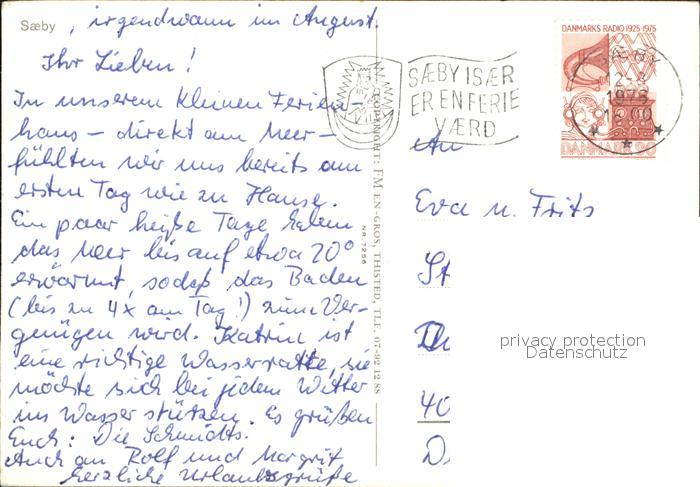 Sæby, irgendwann im August.
Ihr Lieben!
In unserem kleinen Ferien-
haus – direkt am Meer –
fühlten wir uns bereits am
ersten Tag wie zu Hause.
Ein paar heiße Tage haben
das Meer bis auf etwa 20°
erwärmt, sodaß das Baden
(bis zu 4x am Tag!) zum Ver-
gnügen wird. Katrin ist
eine richtige Wasserratte, sie
möchte sich bei jedem Wetter
ins Wasser stürzen. Es grüßen
Euch: Die Schmidts.
Auch an Rolf und Margrit
herzliche Urlaubsgrüße
COPYRIGHT: FM EN-GROS, THISTED, TLF. 07-92 12 88
NR. 7256
SÆBY ISÆR
ER EN FERIE
VÆRD
DANMARKS RADIO 1925-1975
SÆBY
12-8
1975
DANMARK 90
An
Eva u. Frits
St
40
D
privacy protection
Datenschutz